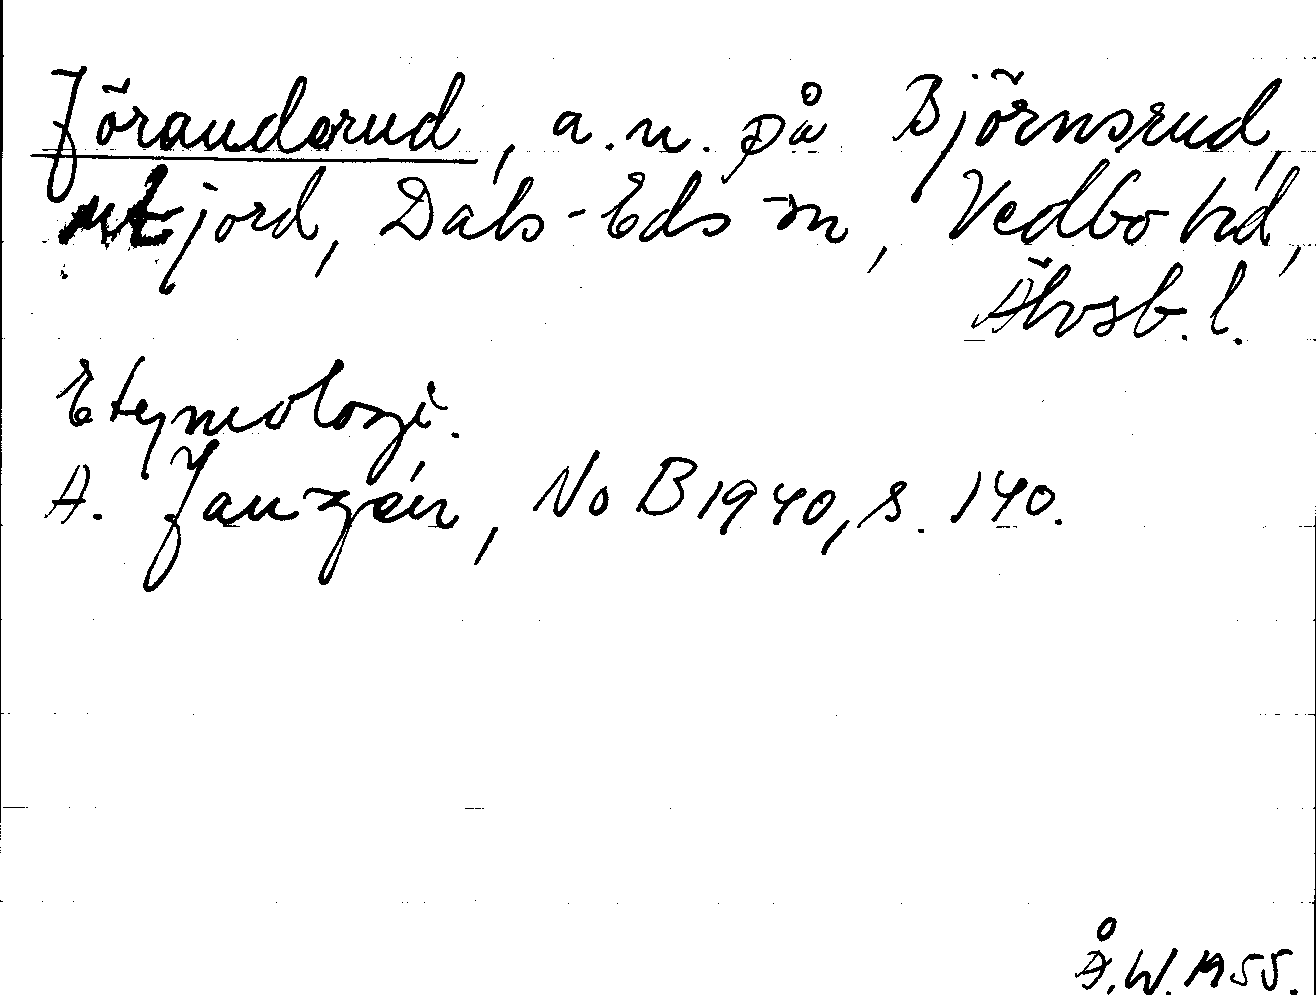 Jörandsrud, a.n. på Björnsrud,
utjord, Dals-Eds sn, Vedbo hd,
Älvsb. l.
Etymologi.
A. Janzén, NoB 1940, s. 140.
Å.W. 1955.